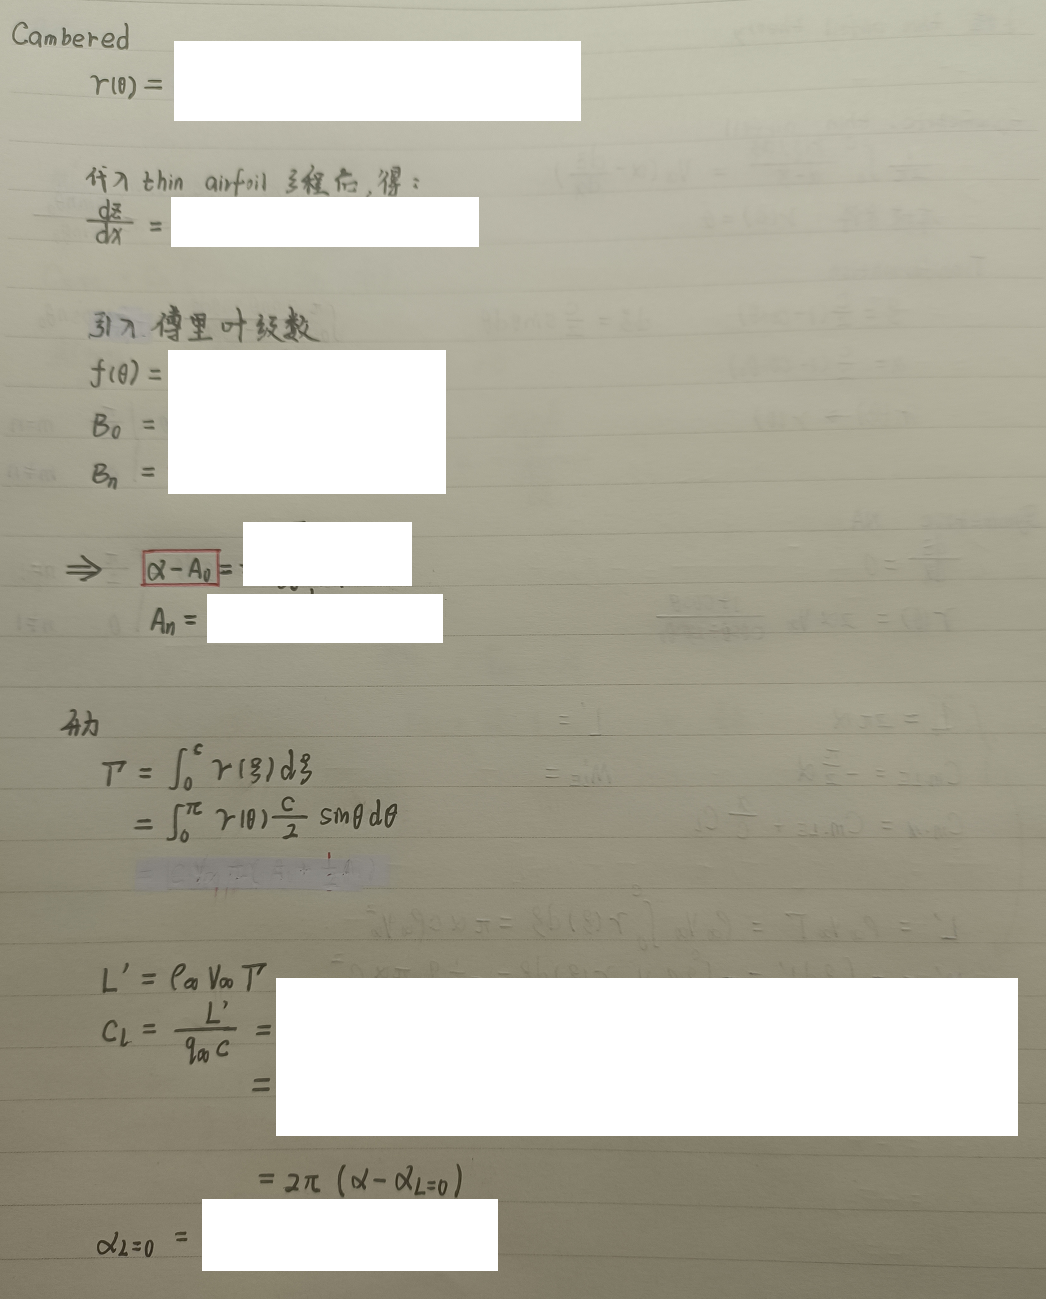 Cambered
γ(θ) =
代入 thin airfoil 方程后,得:
dz/dx =
引入 傅里叶级数
f(θ) =
B₀ =
Bₙ =
⇒ α-A₀ =
Aₙ =
升力
Γ = ∫₀ᶜ γ(ξ)dξ
= ∫₀^π γ(θ) c/2 sinθdθ
L' = ρ∞ V∞ Γ
C_L = L'/(q∞ c) =
=
= 2π (α-α_L=0)
α_L=0 =